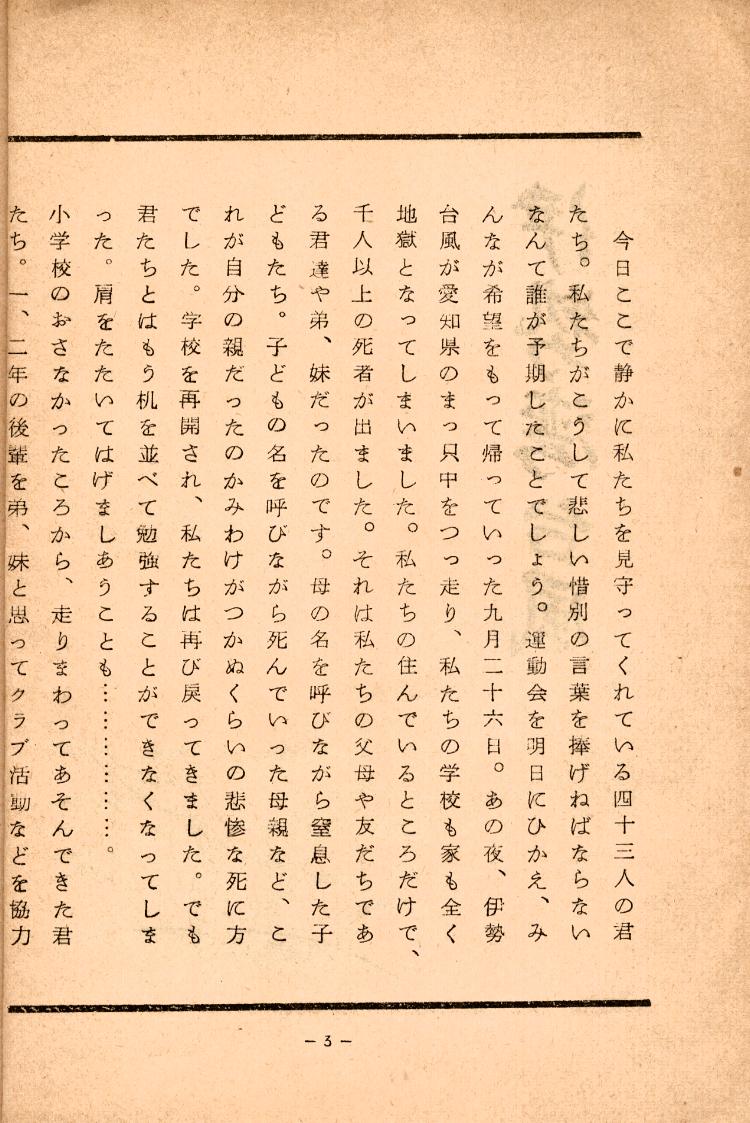 今日ここで静かに私たちを見守ってくれている四十三人の君
たち。私たちがこうして悲しい惜別の言葉を捧げねばならない
なんて誰が予期したことでしょう。運動会を明日にひかえ、み
んなが希望をもって帰っていった九月二十六日。あの夜、伊勢
台風が愛知県のまっ只中をつっ走り、私たちの学校も家も全く
地獄となってしまいました。私たちの住んでいるところだけで、
千人以上の死者が出ました。それは私たちの父母や友だちであ
る君達や弟、妹だったのです。母の名を呼びながら窒息した子
どもたち。子どもの名を呼びながら死んでいった母親など、こ
れが自分の親だったのかみわけがつかぬくらいの悲惨な死に方
でした。学校を再開され、私たちは再び戻ってきました。でも
君たちとはもう机を並べて勉強することができなくなってしま
った。肩をたたいてはげましあうことも………………。
小学校のおさなかったころから、走りまわってあそんできた君
たち。一、二年の後輩を弟、妹と思ってクラブ活動などを協力
— 3 —